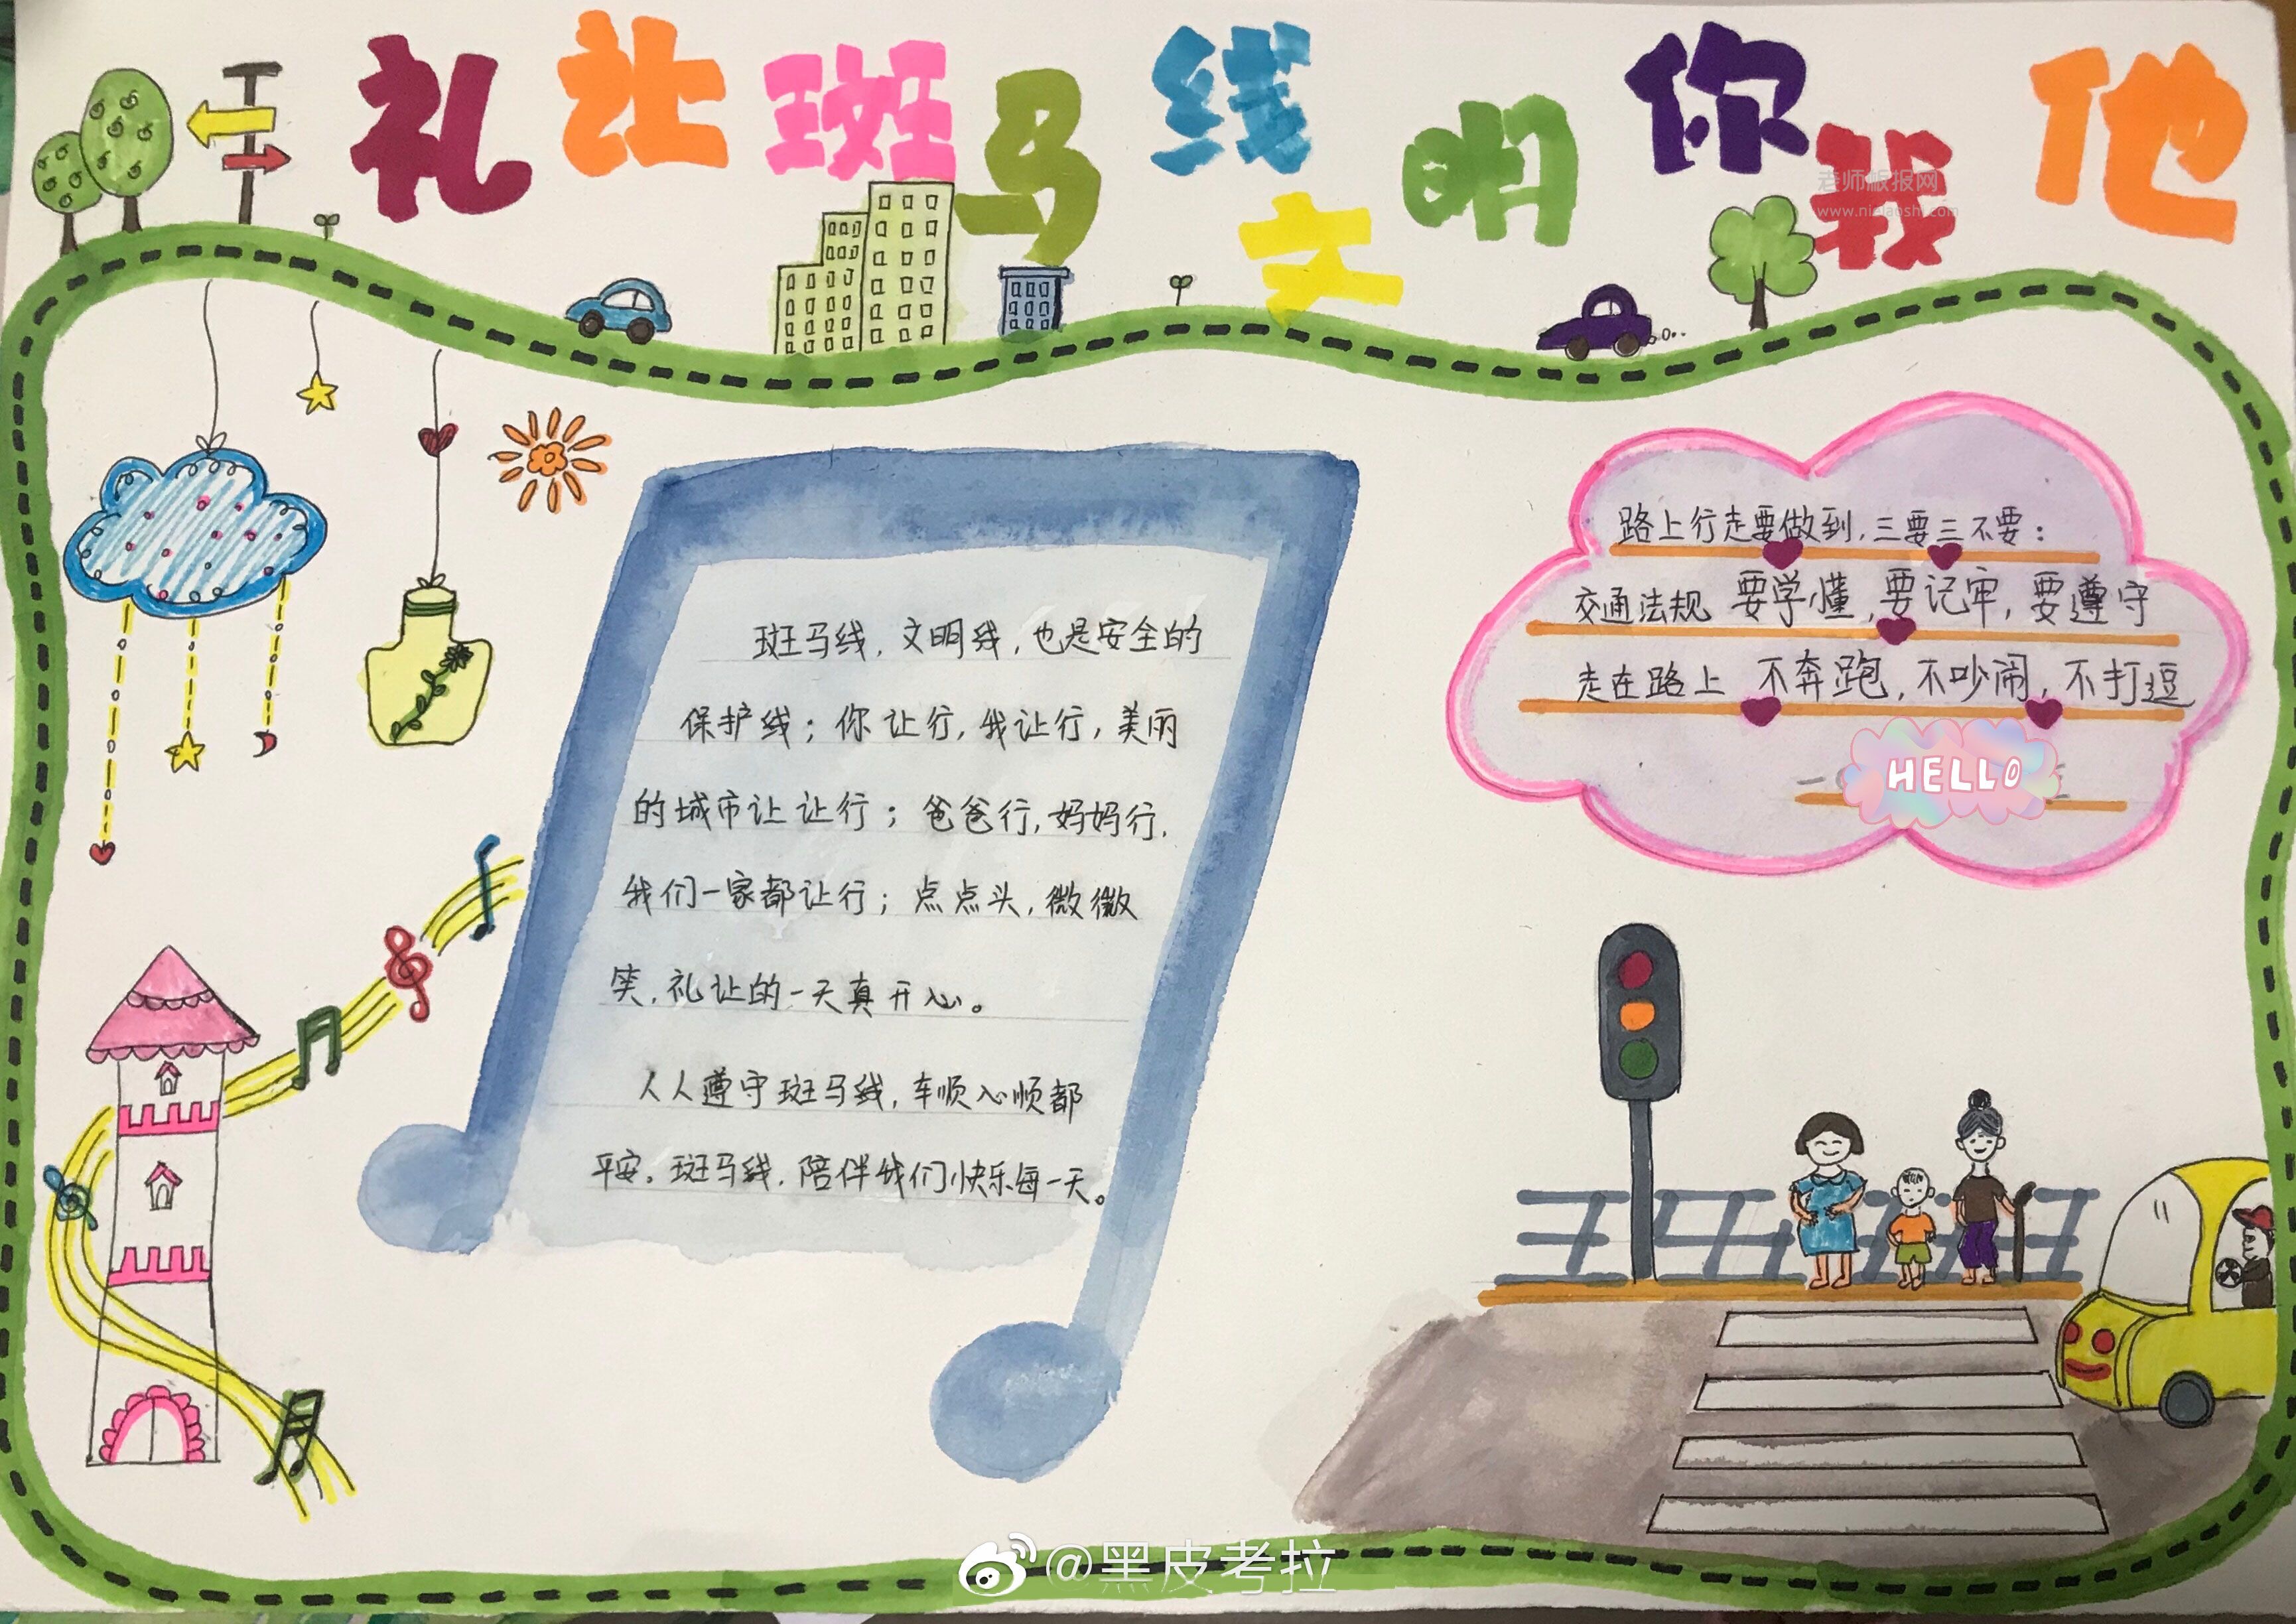 礼让斑马线 文明你我他
老师板报网
斑马线，文明线，也是安全的
保护线；你让行，我让行，美丽
的城市让让行；爸爸行，妈妈行，
我们一家都让行；点点头，微微
笑，礼让的一天真开心。
人人遵守斑马线，车顺心顺都
平安。斑马线，陪伴我们快乐每一天。
路上行走要做到，三要三不要：
交通法规 要学懂，要记牢，要遵守
走在路上 不奔跑，不吵闹，不打逗
HELLO
@黑皮考拉